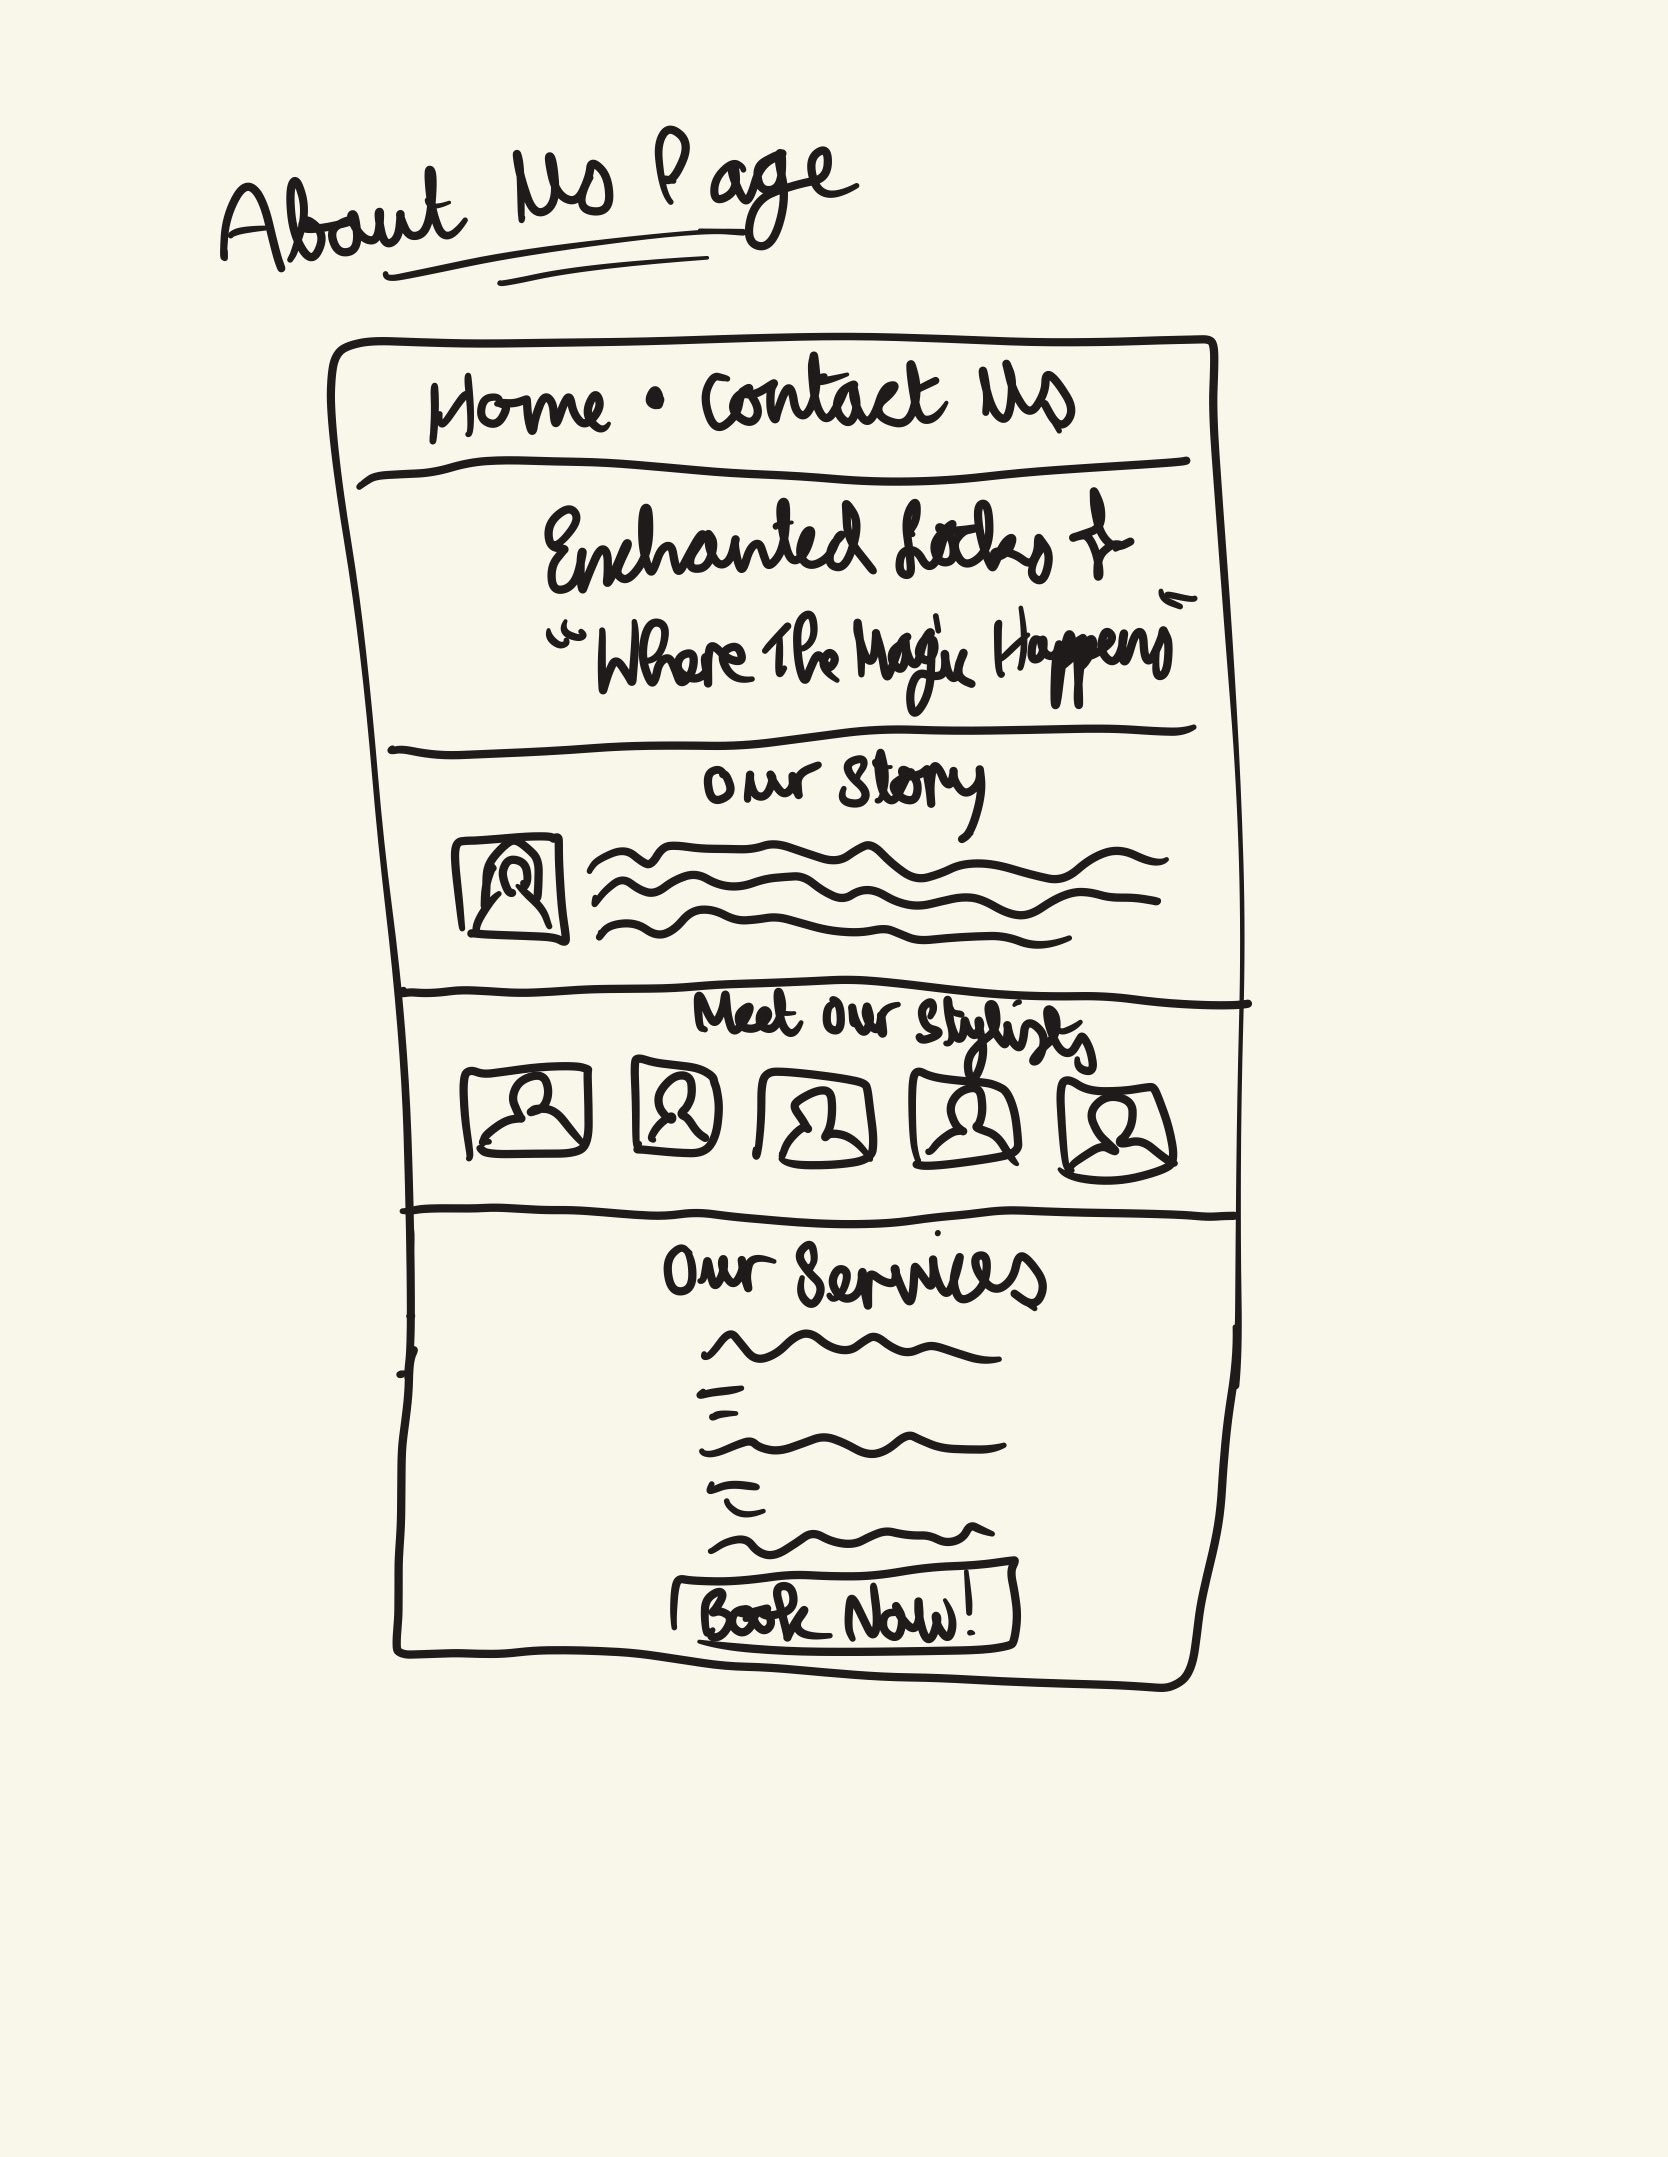 About Us Page
Home • Contact Us
Enchanted Locks
"Where The Magic Happens"
Our Story
Meet Our Stylists
Our Services
Book Now!